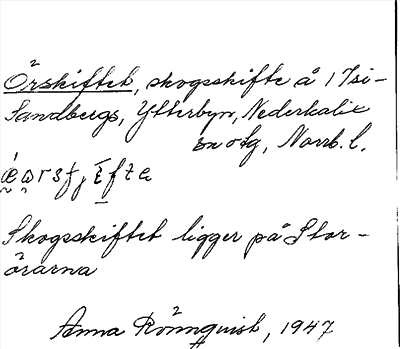 Örskiftet, skogsskifte å 17si-
Sandbergs, Ytterbyn, Nederkalix
sn o tg, Norrb. l.
Skogsskiftet ligger på Stor-
örarna
Anna Rönnquist, 1947